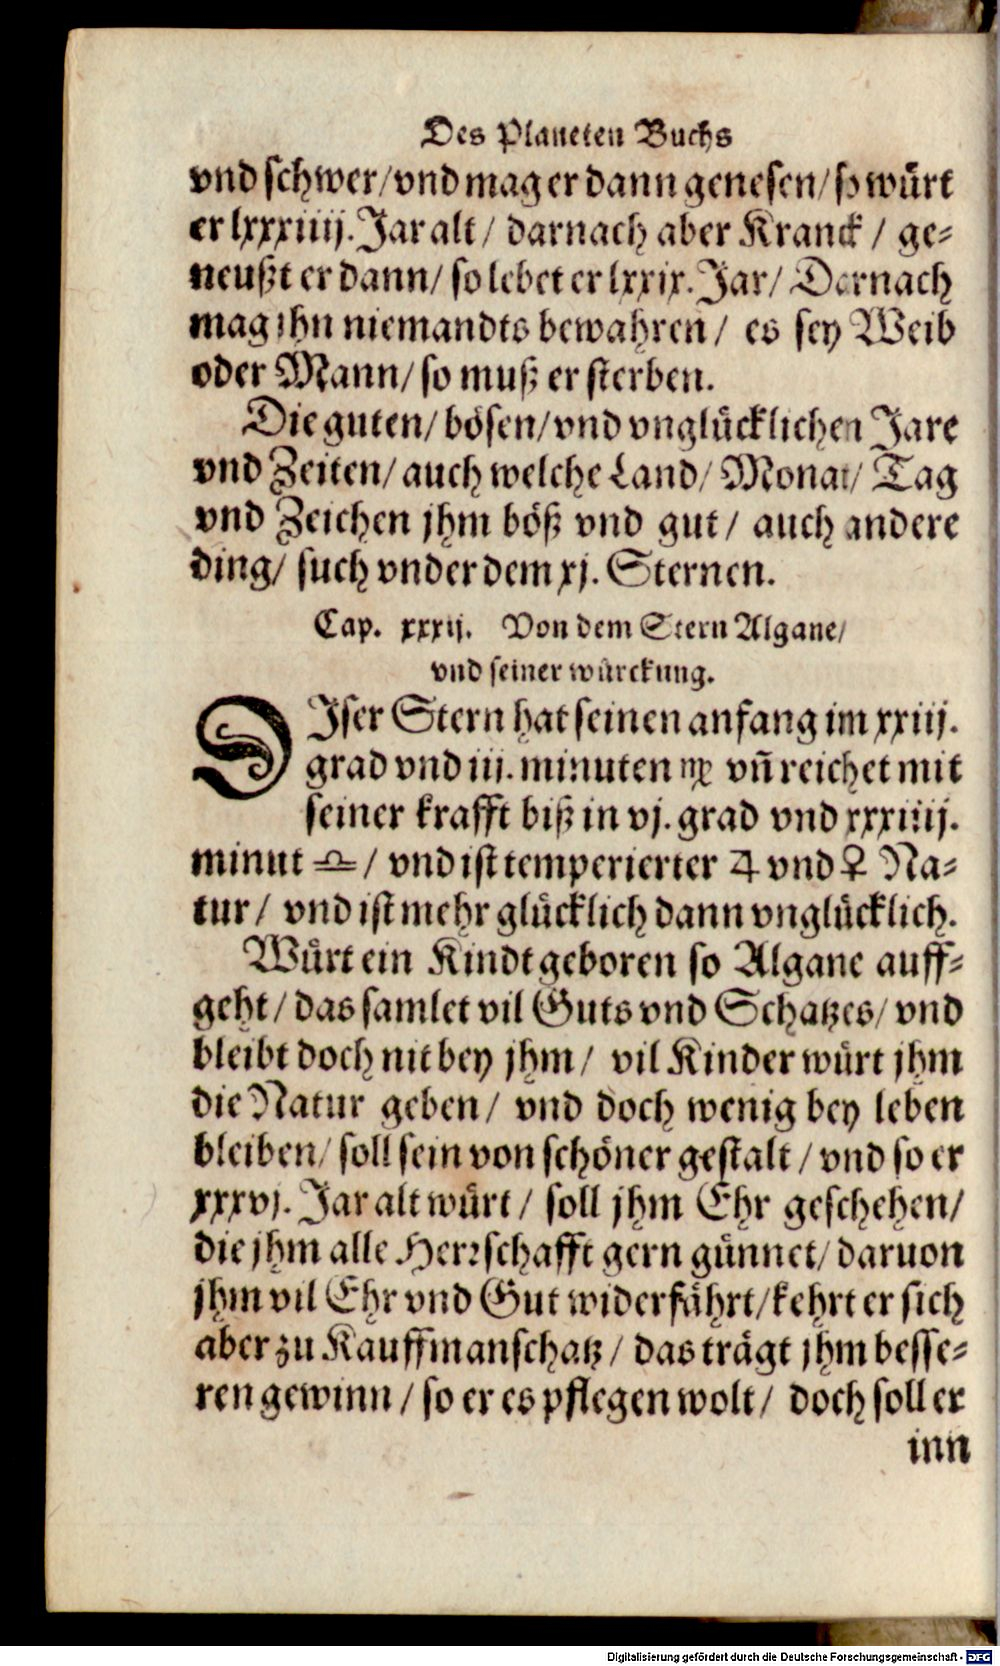 Des Planeten Buchs
vnd schwer/vnd mag er dann genesen/so würt
er lxxxiiij. Jar alt/ darnach aber Kranck/ ge-
neußt er dann/ so lebet er lxxix. Jar/ Darnach
mag jhn niemandts bewahren/ es sey Weib
oder Mann/ so muß er sterben.
Die guten/ bösen/ vnd vnglücklichen Jare
vnd Zeiten/ auch welche Land/ Monat/ Tag
vnd Zeichen jhm böß vnd gut/ auch andere
ding/ such vnder dem xj. Sternen.
Cap. xxxij. Von dem Stern Algane/
vnd seiner würckung.
DJser Stern hat seinen anfang im xxiij.
grad vnd iij. minuten ♍ vñ reichet mit
seiner krafft biß in vj. grad vnd xxxiiij.
minut ♎/ vnd ist temperierter ♃ vnd ♀ Na-
tur/ vnd ist mehr glücklich dann vnglücklich.
Würt ein Kindt geboren so Algane auff-
geht/ das samlet vil Guts vnd Schatzes/ vnd
bleibt doch nit bey jhm/ vil Kinder würt jhm
die Natur geben/ vnd doch wenig bey leben
bleiben/ soll sein von schöner gestalt/ vnd so er
xxxvj. Jar alt würt/ soll jhm Ehr geschehen/
die jhm alle Herrschafft gern günnet/ daruon
jhm vil Ehr vnd Gut widerfährt/kehrt er sich
aber zu Kauffmanschatz/ das trägt jhm besse-
ren gewinn/ so er es pflegen wolt/ doch soll er
inn
Digitalisierung gefördert durch die Deutsche Forschungsgemeinschaft - DFG